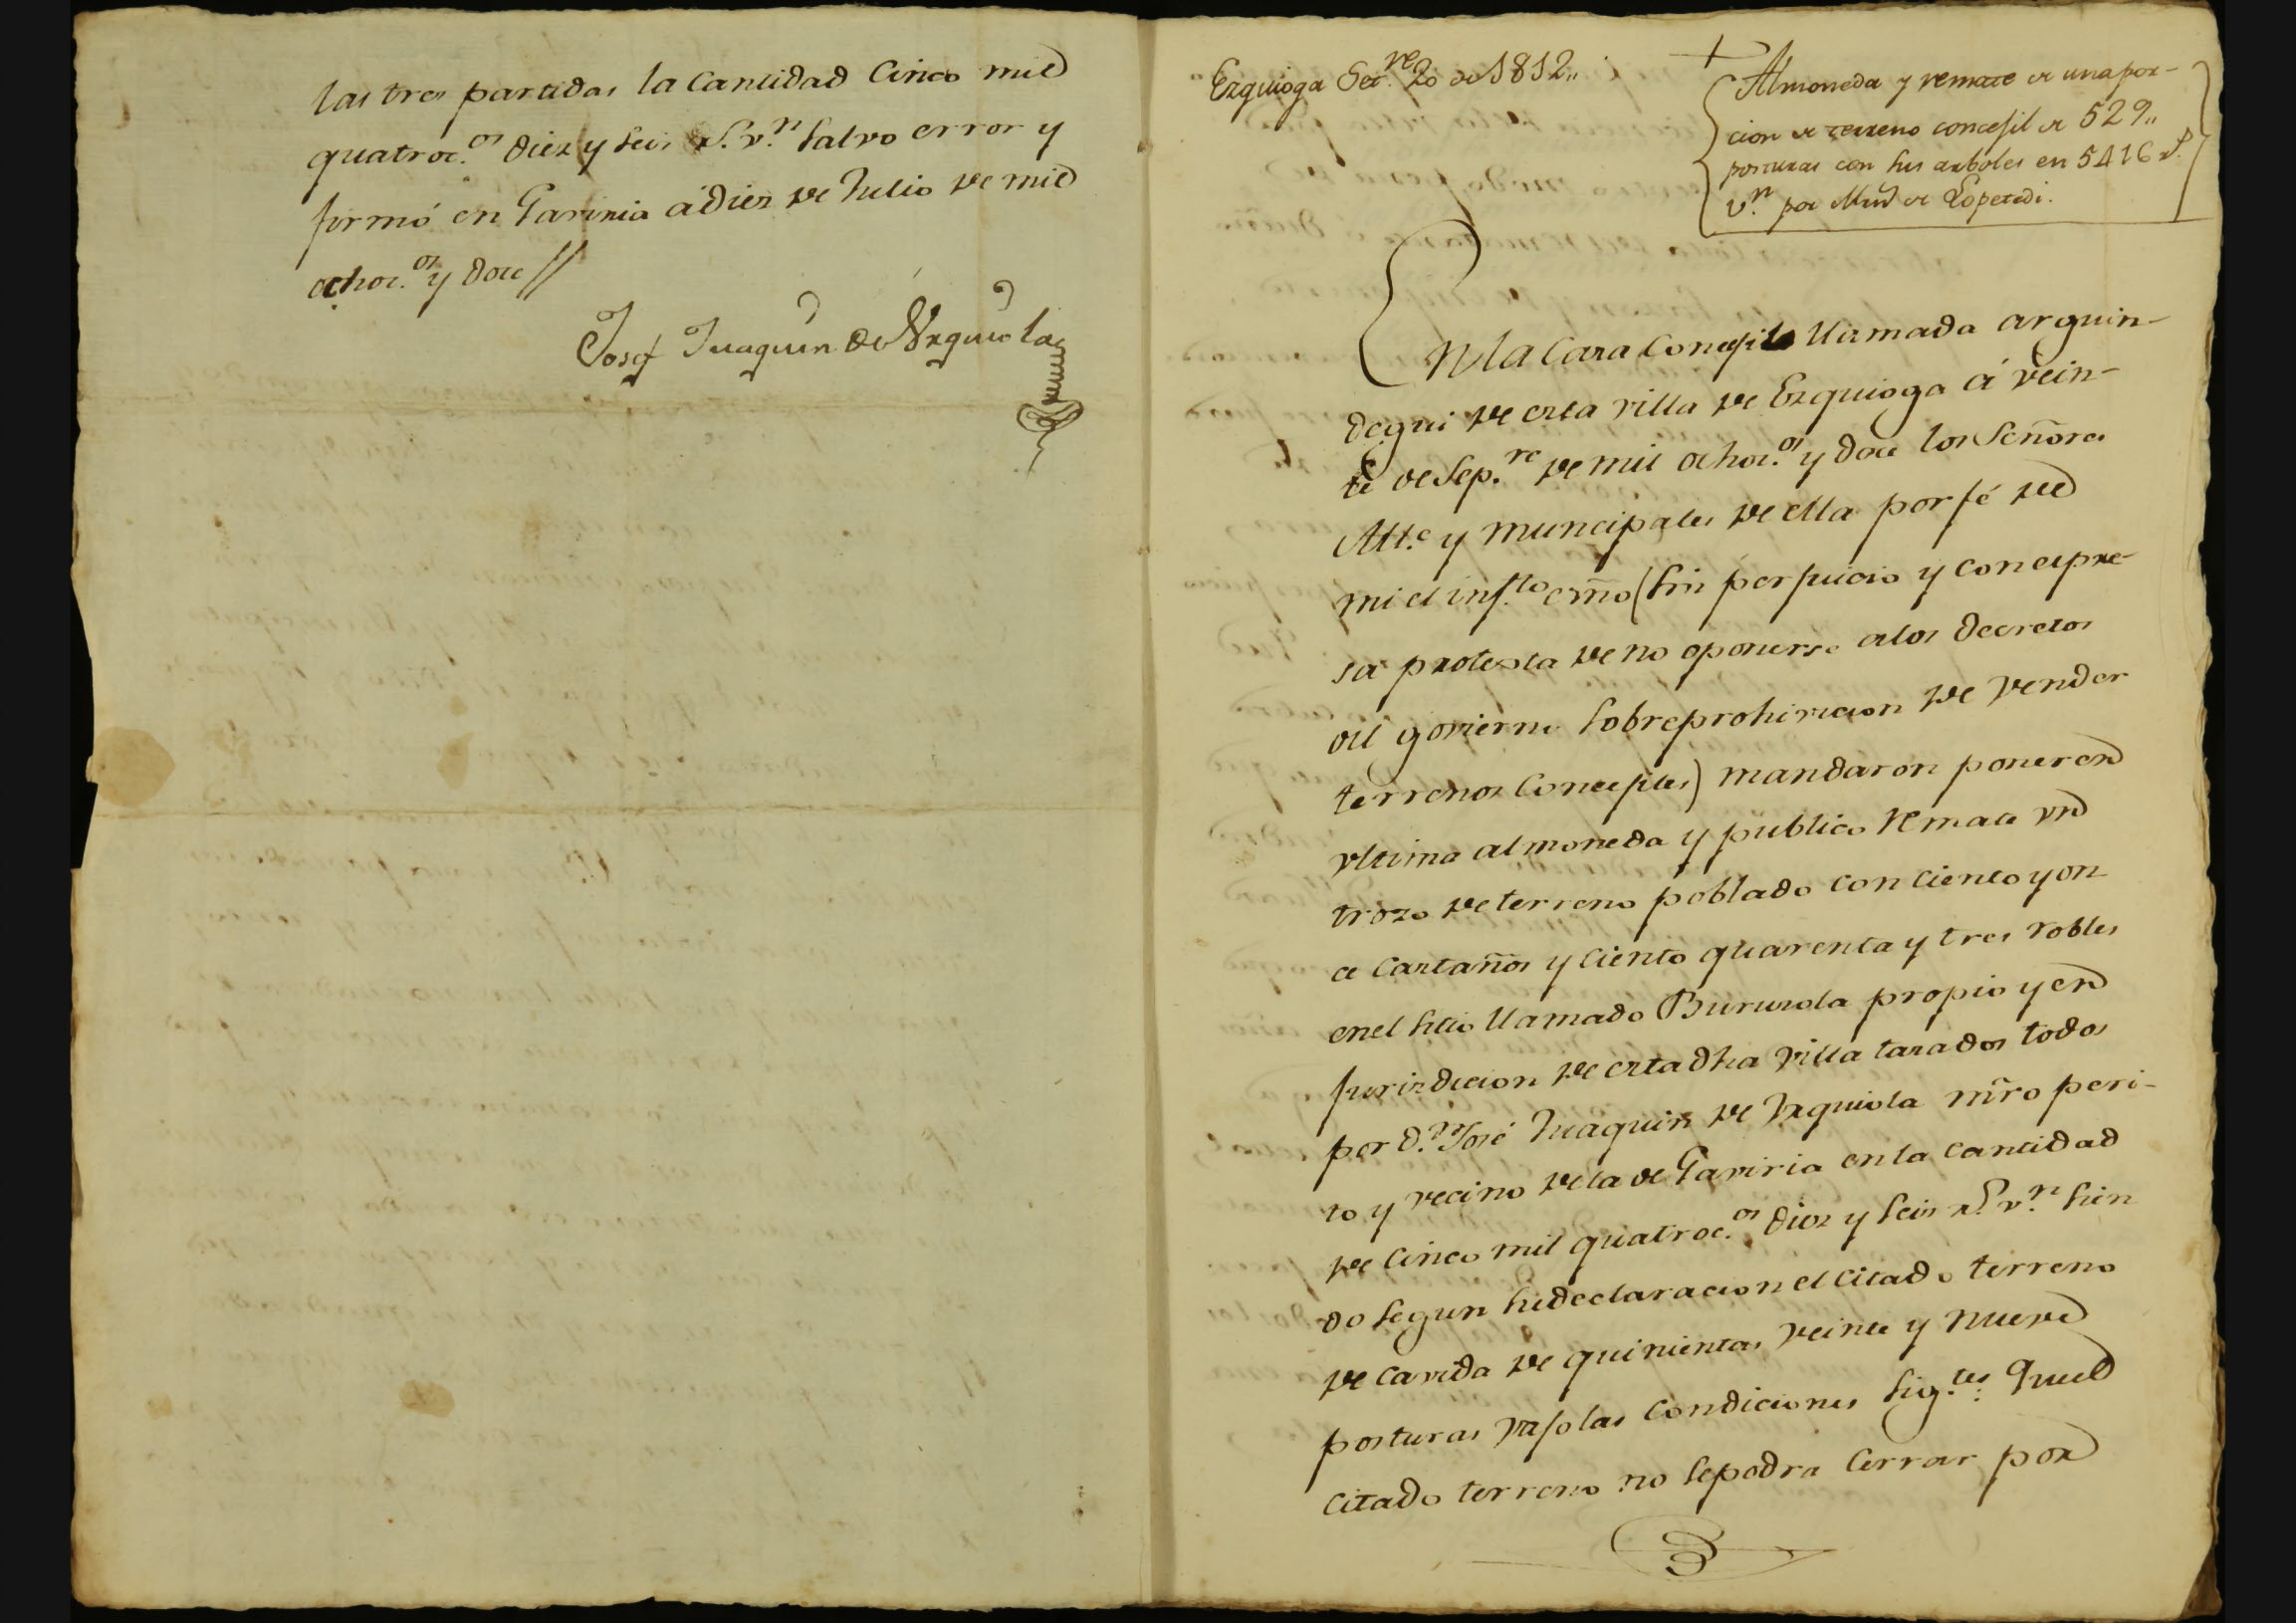 las tres partidas la Cantidad Cinco mil
quatroc.os diez y seis rs. v.n salvo error y
firmó en Gaviria á diez de Julio de mil
ochoc.os y doce //
Josef Juaquin de Urquiola
Ezquioga Set.re 20 de 1812,,
+
Almoneda y remate de una por-
cion de terreno concejil de 529,,
posturas con sus arboles en 5416 rs.
v.n por Man.l de Lopetedi.
En la Casa Concejil llamada arguin-
degui de esta villa de Ezquioga á vein-
te de Sep.re de mil ochoc.os y doce los Señores
Alc.e y Muncipales de ella por fé de
mi el inf.to esno (sin perjuicio y con expre-
sa protesta de no oponerse a los decretos
del govierno sobre prohivicion de vender
terrenos Concejiles) mandaron poner en
ultima almoneda y publico remate un
trozo de terreno poblado con ciento y on
ce Castaños y ciento quarenta y tres robles
en el sitio llamado Burunola propio y en
jurizdicion de esta dha villa tasados todos
por d.n José Juaquin de Urquiola mro peri-
to y vecino de la de Gaviria en la cantidad
de cinco mil quatroc.os diez y seis rs. v.n sien
do segun su declaracion el citado terreno
de cavida de quinientas veinte y nueve
posturas vajo las condiciones sig.tes Que el
citado terreno no se podra Cerrar por